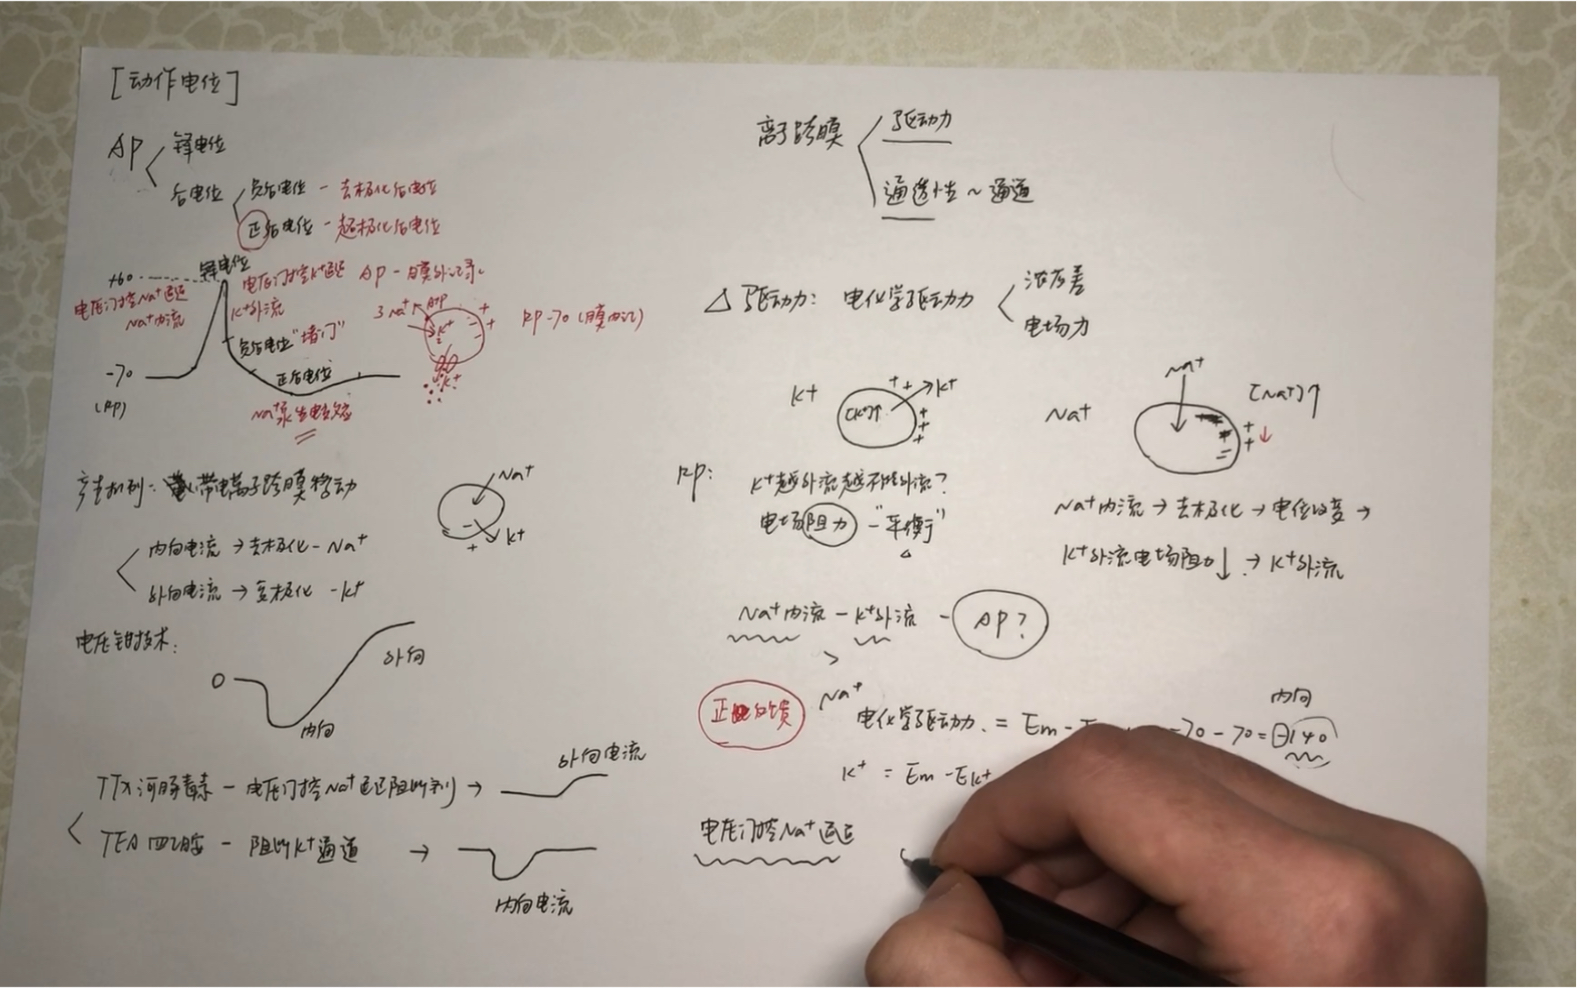 [动作电位]
AP
锋电位
后电位
负后电位 - 去极化后电位
正后电位 - 超极化后电位
+60
锋电位
电压门控Na+通道
Na+内流
电压门控K+通道
K+外流
AP - 膜外记录
RP -70 (膜内记)
3Na+ ATP
K+
K+
负后电位"堵门"
正后电位
-70
(RP)
Na+泵生电效应
产生机制: 带电离子跨膜移动
Na+
K+
内向电流 → 去极化 - Na+
外向电流 → 复极化 - K+
电压钳技术:
0
外向
内向
TTX 河豚毒素 - 电压门控Na+通道阻断剂 →
外向电流
TEA 四乙胺 - 阻断K+通道 →
内向电流
离子跨膜
驱动力
通透性 ~ 通道
△ 驱动力: 电化学驱动力
浓度差
电场力
K+
[K+]↑
K+
Na+
Na+
[Na+]↑
RP:
K+越外流越不能外流?
电场阻力 - "平衡"
Na+内流 → 去极化 → 电位改变 →
K+外流电场阻力↓ → K+外流
Na+内流 - K+外流 - AP?
>
正反馈
Na+
内向
电化学驱动力 = Em - -70 - 70 = -140
K+ = Em - EK+
电压门控Na+通道